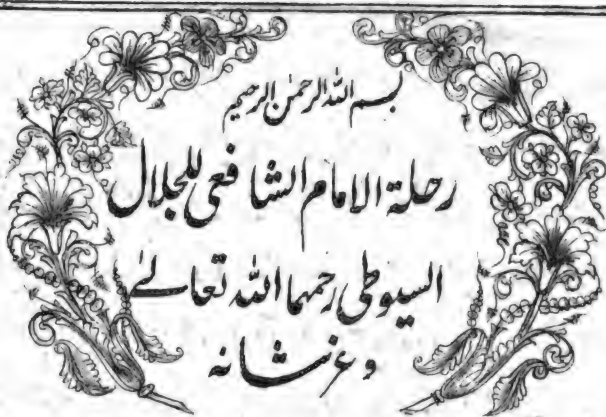 بسم الله الرحمن الرحيم
رحلة الامام الشافعي للجلال
السيوطي رحمهما الله تعالى
وعز شانه